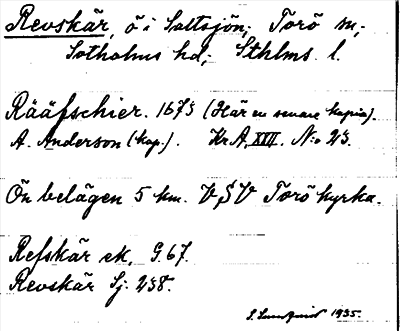 Revskär, ö i Saltsjön; Torö sn;
Sotholms hd; Sthlms l.
Rääfschier. 1673 (Här en senare kopia).
A. Anderson (kap.). Kr.A. XIII. N:o 23.
Ön belägen 5 km. V S V Torö kyrka.
Refskär ek. G. 67.
Revskär Sj. 238.
1935.